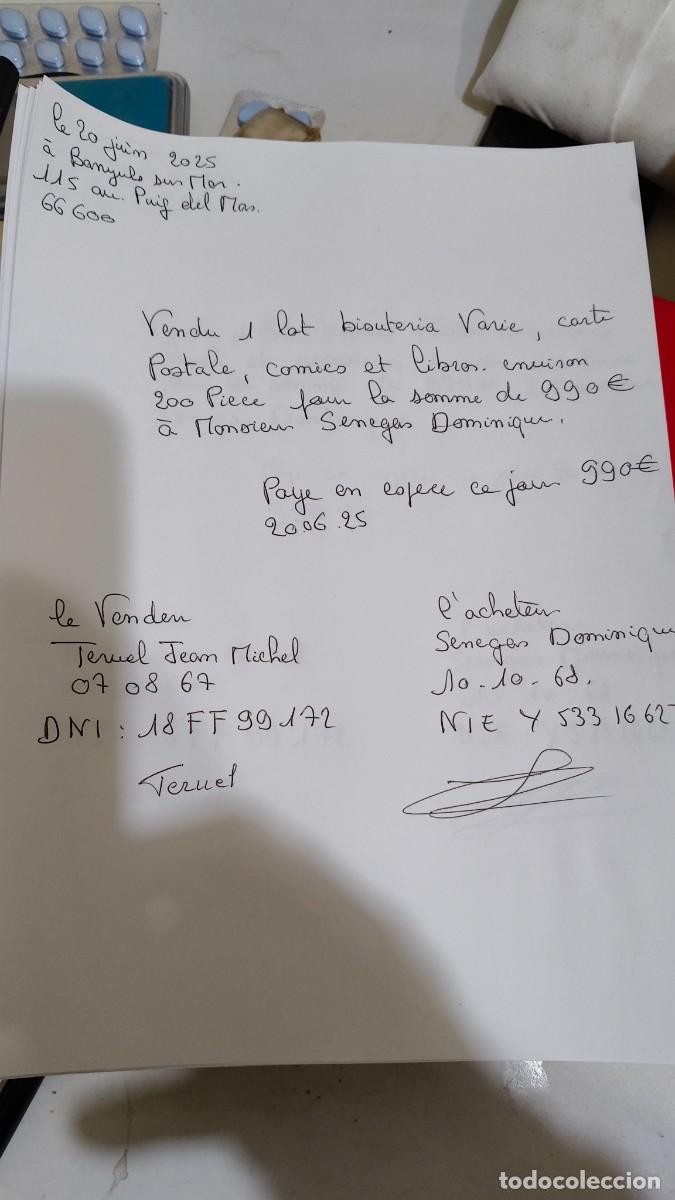 le 20 juin 2025
à Banyuls sur Mer.
115 av. Puig del Mas.
66600
Vendu 1 lot biouteria Varie, carte
Postale, comics et libros. environ
200 Piece pour la somme de 990€
à Monsieur Senegas Dominique.
Paye en espece ce jour 990€
20.06.25
le Vendeu
Teruel Jean Michel
07 08 67
DNI : 18FF99172
Teruel
l'acheteur
Senegas Dominique
10-10-68.
NIE Y 5331662
todocoleccion